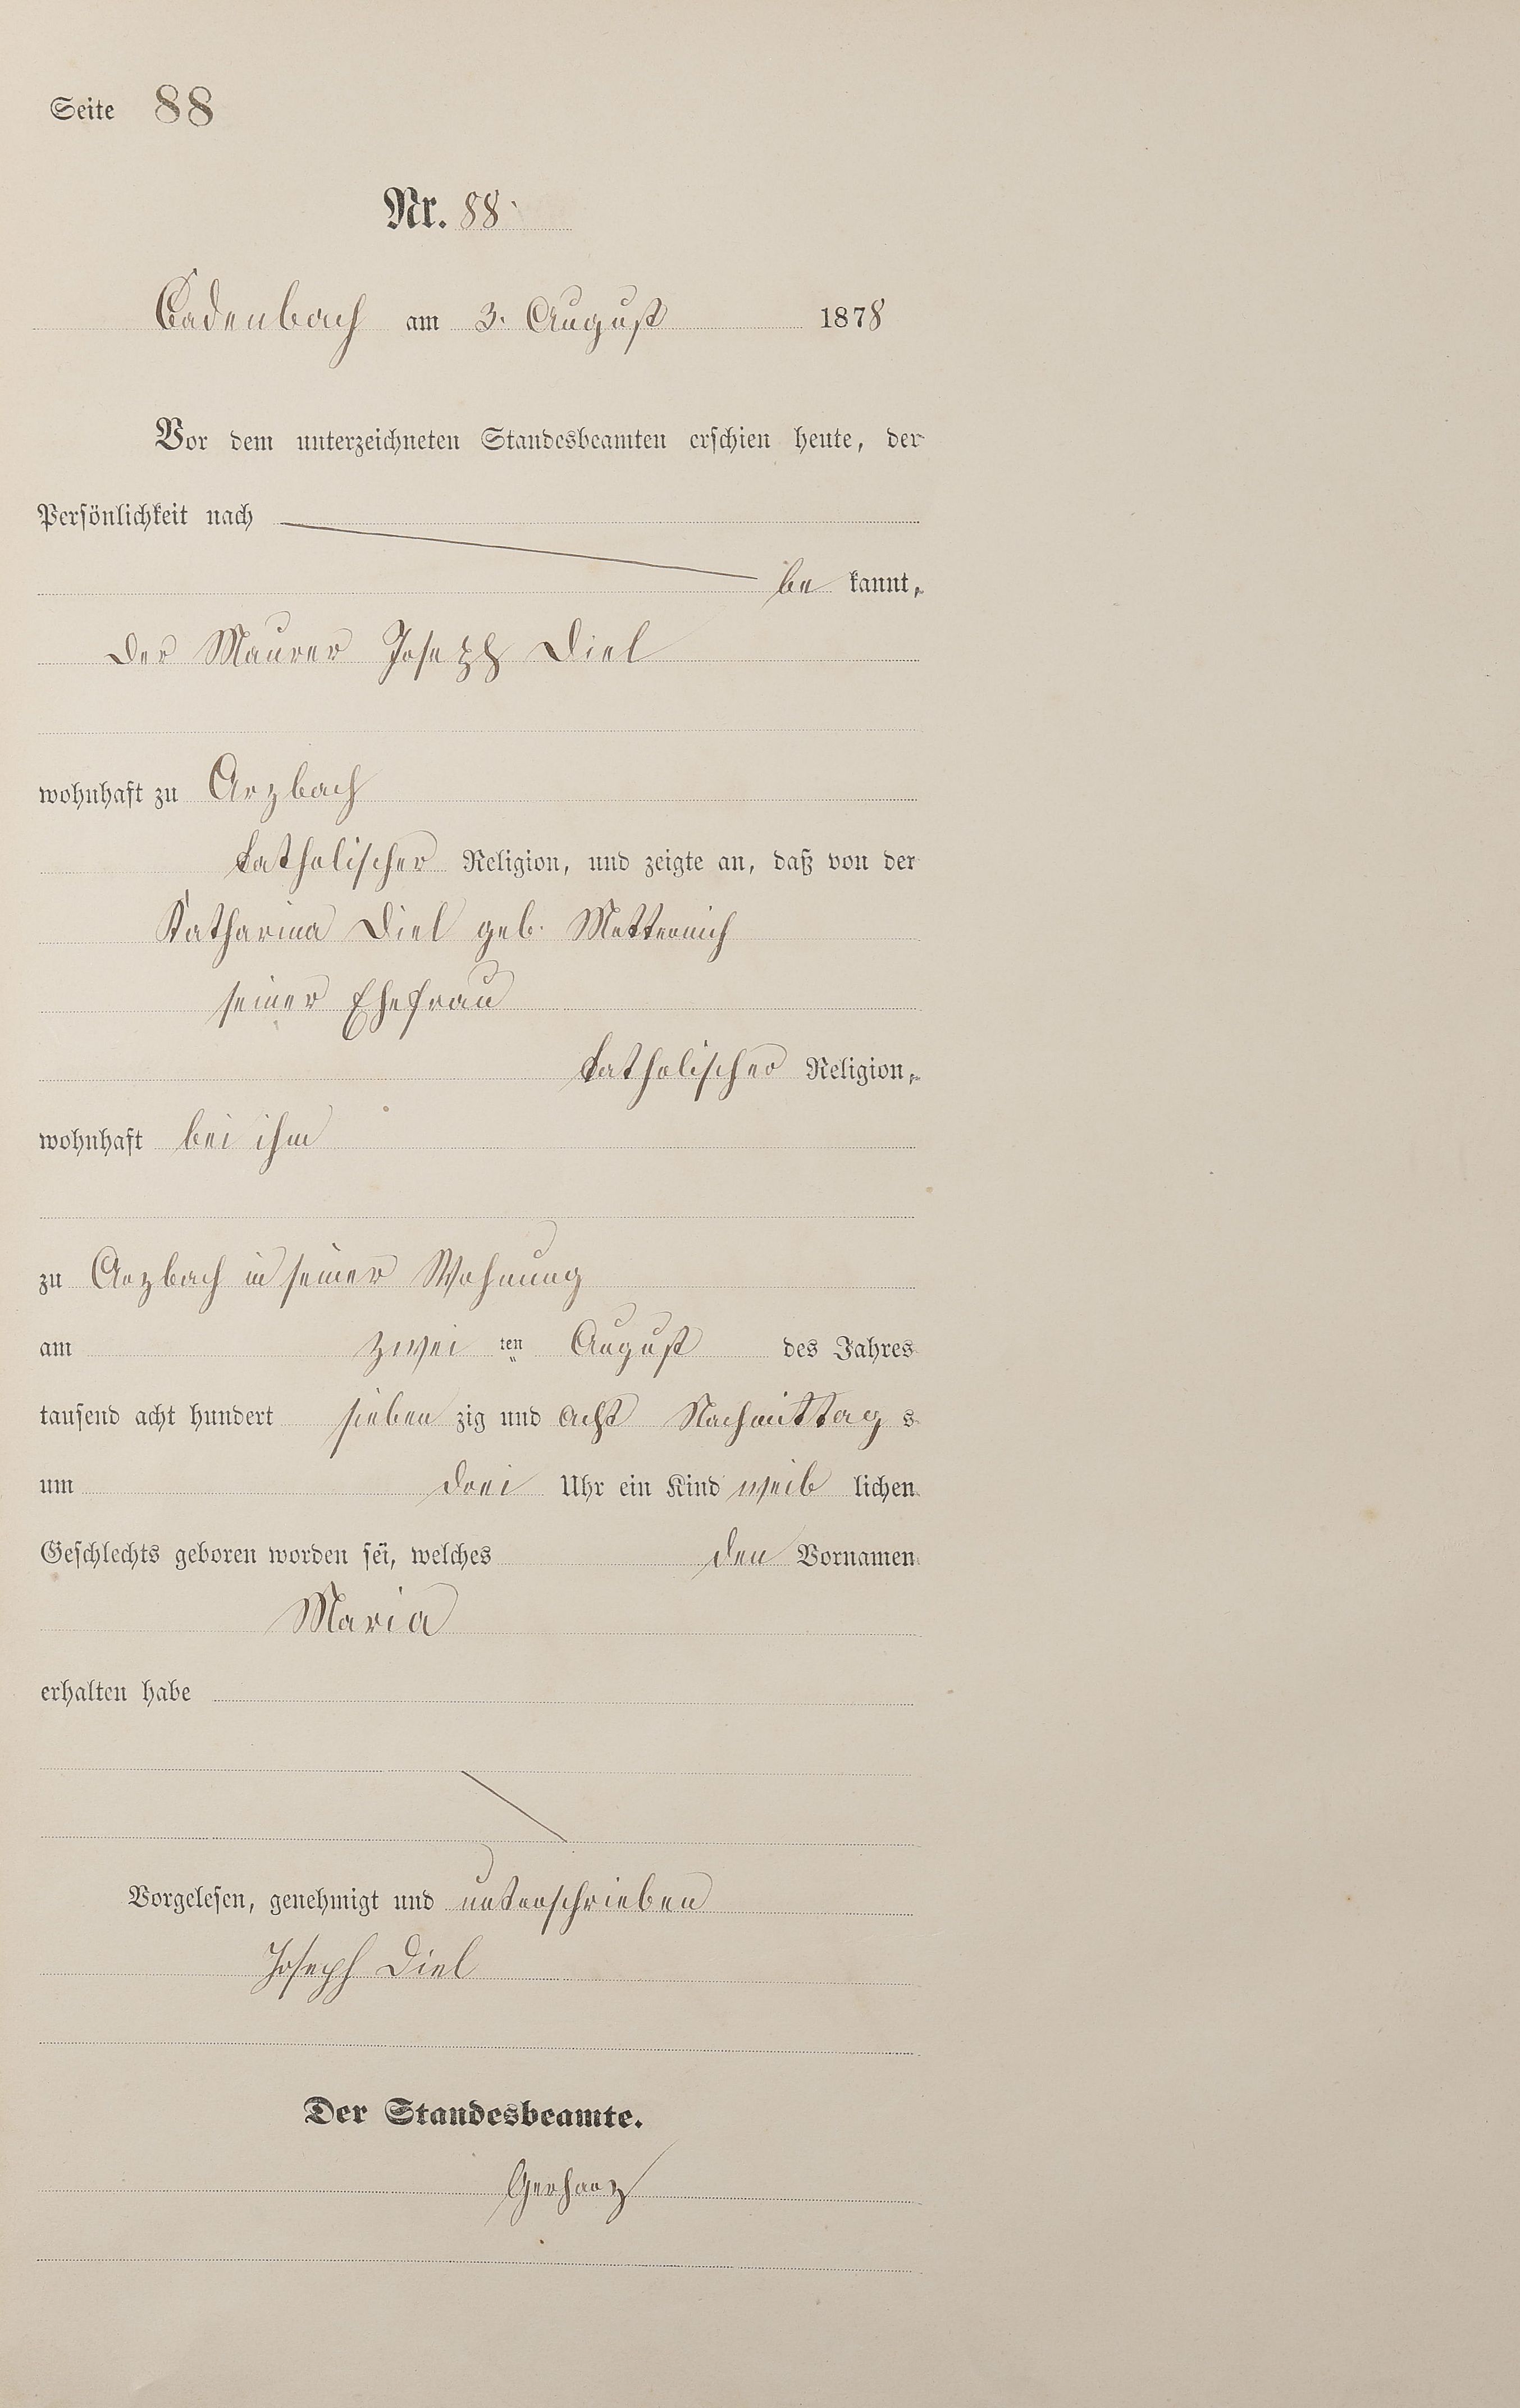 Seite 88
Nr. 88.
Cadenbach am 3. August 1878
Vor dem unterzeichneten Standesbeamten erschien heute, der
Persönlichkeit nach
be kannt,
der Maurer Joseph Diel
wohnhaft zu Arzbach
katholischer Religion, und zeigte an, daß von der
Katharina Diel geb. Metternich
seiner Ehefrau
katholischer Religion,
wohnhaft bei ihm
zu Arzbach in seiner Wohnung
am zwei ten August des Jahres
tausend acht hundert sieben zig und acht Nachmittag s
um drei Uhr ein Kind weib lichen
Geschlechts geboren worden sei, welches den Vornamen
Maria
erhalten habe
Vorgelesen, genehmigt und unterschrieben
Joseph Diel
Der Standesbeamte.
Gerharz